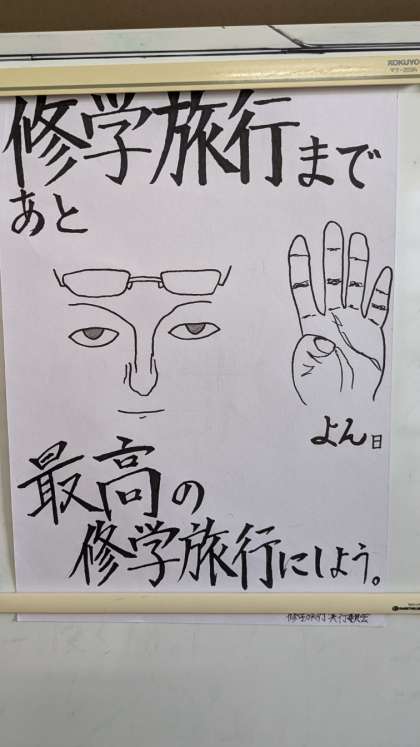 KOKUYO
修学旅行まで
あと
よん日
最高の
修学旅行にしよう。
修学旅行実行委員会